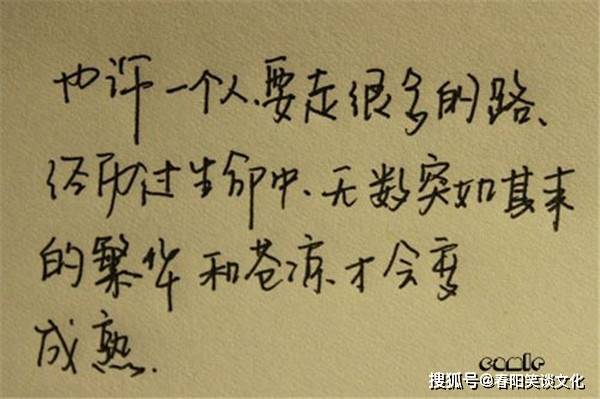 也许一个人、要走很多的路、
经历过生命中、无数突如其来
的繁华和苍凉、才会变
成熟.
comic
搜狐号@春阳笑谈文化